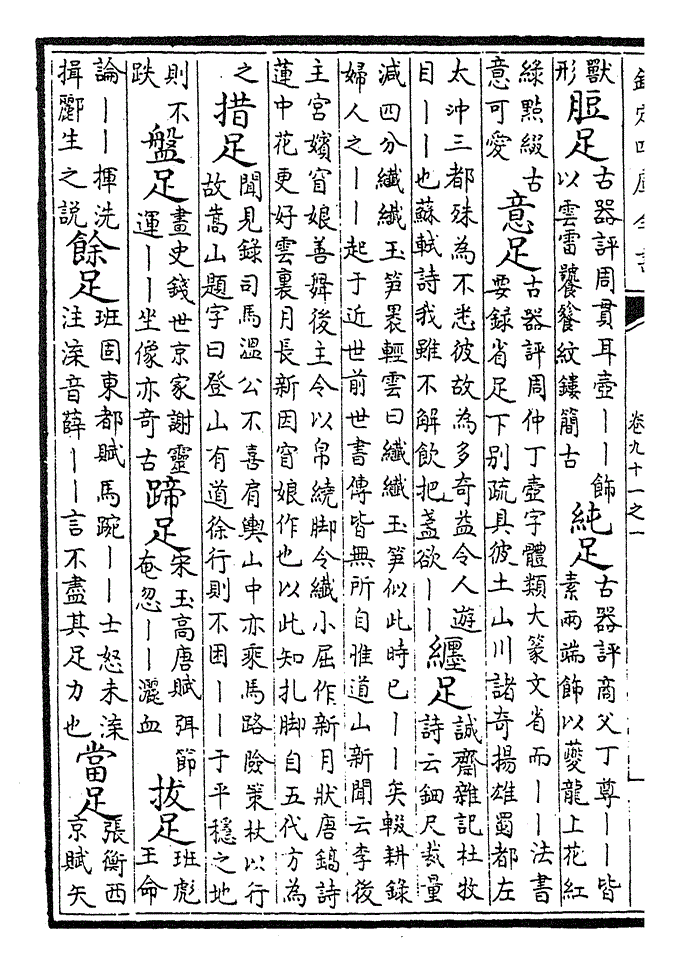 欽定四庫全書
卷九十一之一
獸
形
脰足
古器評周貫耳壺——飾
以雲雷饕餮紋鏤簡古
純足
古器評商父丁尊——皆
素兩端飾以夔龍上花紅
綠點綴古
意可愛
意足
古器評周仲丁壺字體類大篆文省而——法書
要錄省足下別疏具彼土山川諸奇揚雄蜀都左
太沖三都殊為不悉彼故為多奇益令人遊
目——也蘇軾詩我雖不解飲把盞欲——
纏足
誠齋雜記杜牧
詩云鈿尺裁量
減四分纖纖玉笋褁輕雲曰纖纖玉笋似此時已——矣輟耕錄
婦人之——起于近世前世書傳皆無所自惟道山新聞云李後
主宮嬪窅娘善舞後主令以帛繞脚令纖小屈作新月狀唐鎬詩
蓮中花更好雲裏月長新因窅娘作也以此知扎脚自五代方為
之
措足
聞見錄司馬溫公不喜肩輿山中亦乘馬路險策杖以行
故嵩山題字曰登山有道徐行則不困——于平穩之地
則不
跌
盤足
畫史錢世京家謝靈
運——坐像亦奇古
蹄足
宋玉高唐賦弭節
奄忽——灑血
拔足
班彪
王命
論——揮洗
揖酈生之説
餘足
班固東都賦馬踠——士怒未渫
注渫音薛——言不盡其足力也
當足
張衡西
京賦矢